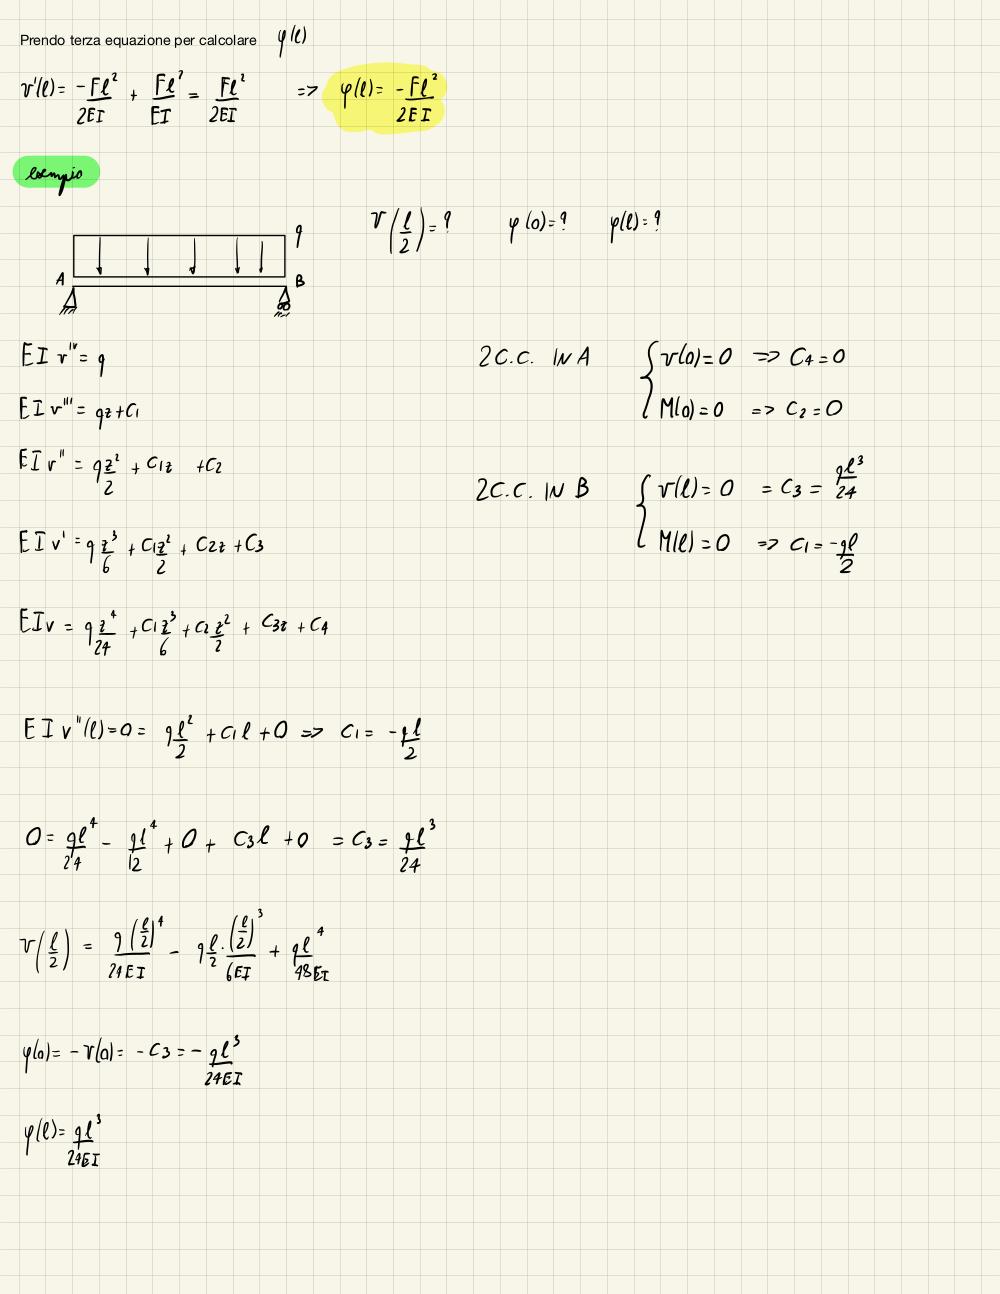 Prendo terza equazione per calcolare φ(l)
v'(l) = -Fl²/2EI + Fl²/EI = Fl²/2EI => φ(l) = -Fl²/2EI
esempio
v(l/2) = ? φ(0) = ? φ(l) = ?
q
A B
EI v'''' = q
EI v''' = qz + C1
EI v'' = q z²/2 + C1z + C2
EI v' = q z³/6 + C1 z²/2 + C2z + C3
EIv = q z⁴/24 + C1 z³/6 + C2 z²/2 + C3z + C4
2 C.C. IN A { v(0) = 0 => C4 = 0
M(0) = 0 => C2 = 0
2 C.C. IN B { v(l) = 0 = C3 = ql³/24
M(l) = 0 => C1 = -ql/2
EI v''(l) = 0 = ql²/2 + C1 l + 0 => C1 = -ql/2
0 = ql⁴/24 - ql⁴/12 + 0 + C3 l + 0 = C3 = ql³/24
v(l/2) = q(l/2)⁴/24EI - q l/2 · (l/2)³/6EI + ql⁴/48EI
φ(0) = -v(0) = -C3 = -ql³/24EI
φ(l) = ql³/24EI